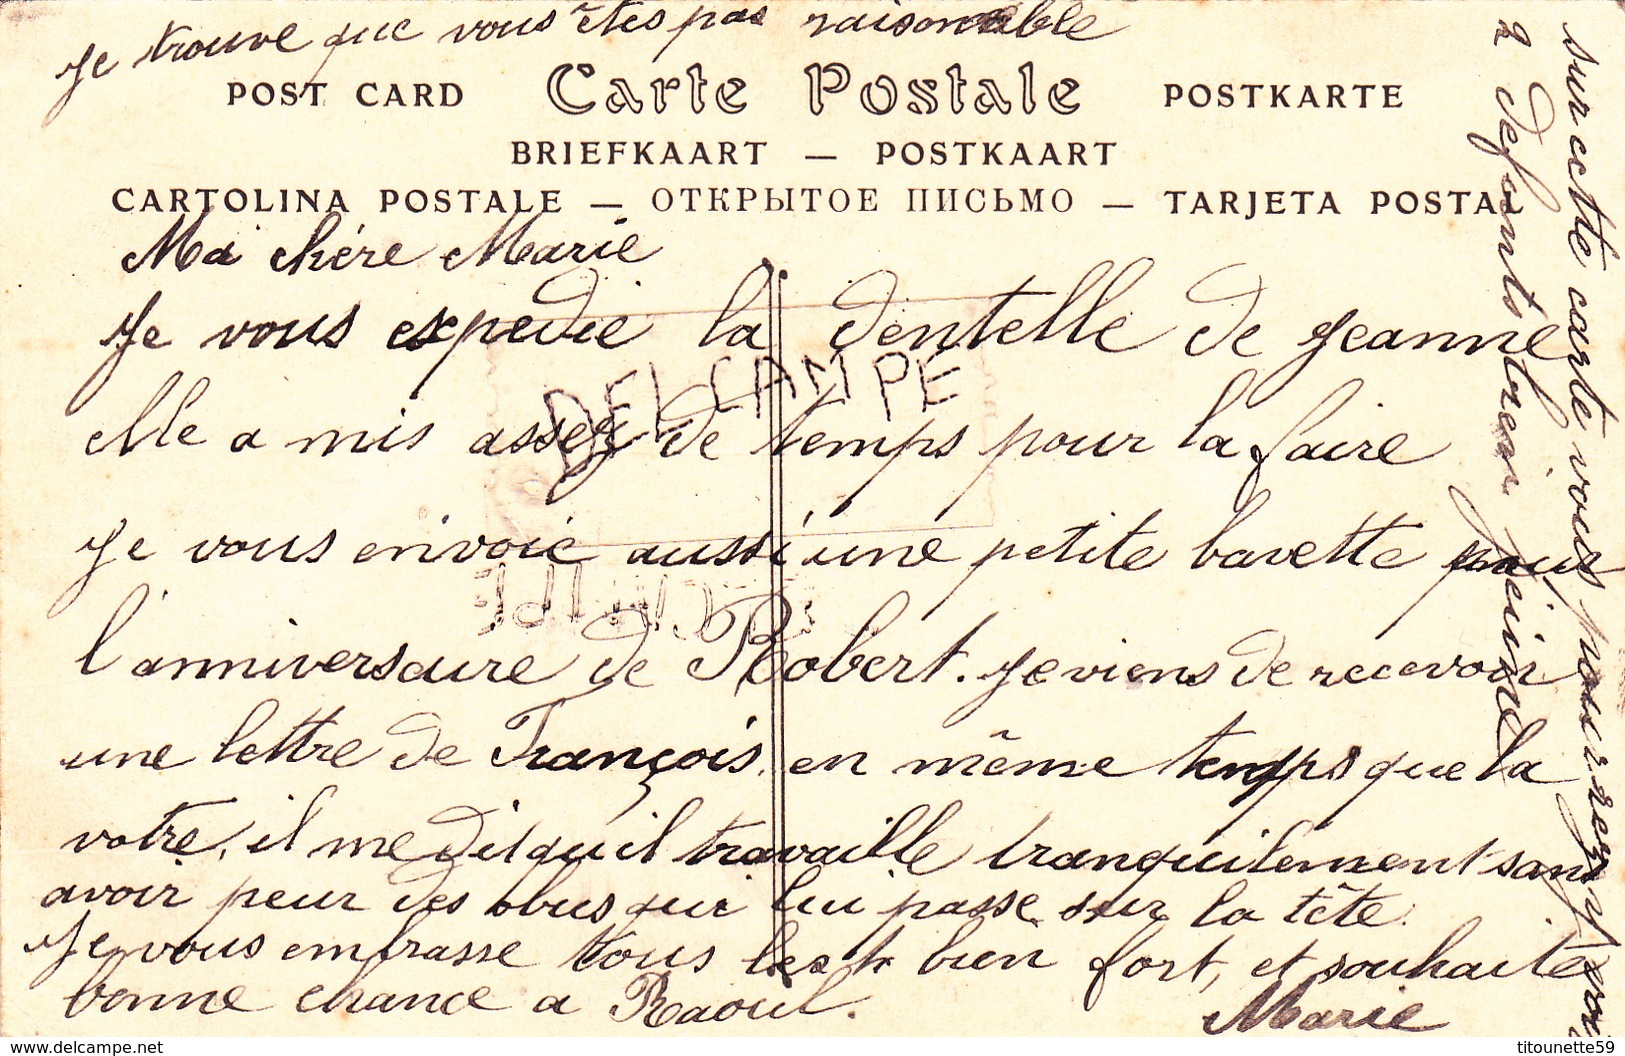 Je trouve que vous êtes pas raisonable
POST CARD Carte Postale POSTKARTE
BRIEFKAART — POSTKAART
CARTOLINA POSTALE — ОТКРЫТОЕ ПИСЬМО — TARJETA POSTAL
Ma chére Marie
Je vous expedie la dentelle de Jeanne
elle a mis assez de temps pour la faire
Je vous envoie aussi une petite bavette pour
l'anniversaire de Robert. Je viens de recevoir
une lettre de François, en même temps que la
votre, il me dit qu'il travaille tranquilement sans
avoir peur des obus qui lui passe sur la tête.
Je vous embrasse tous les bien fort, et souhaite
bonne chance a Raoul.
Marie
sur cette carte vous pouvrez y
2 defunts
DELCAMPE
titounette59
www.delcampe.net